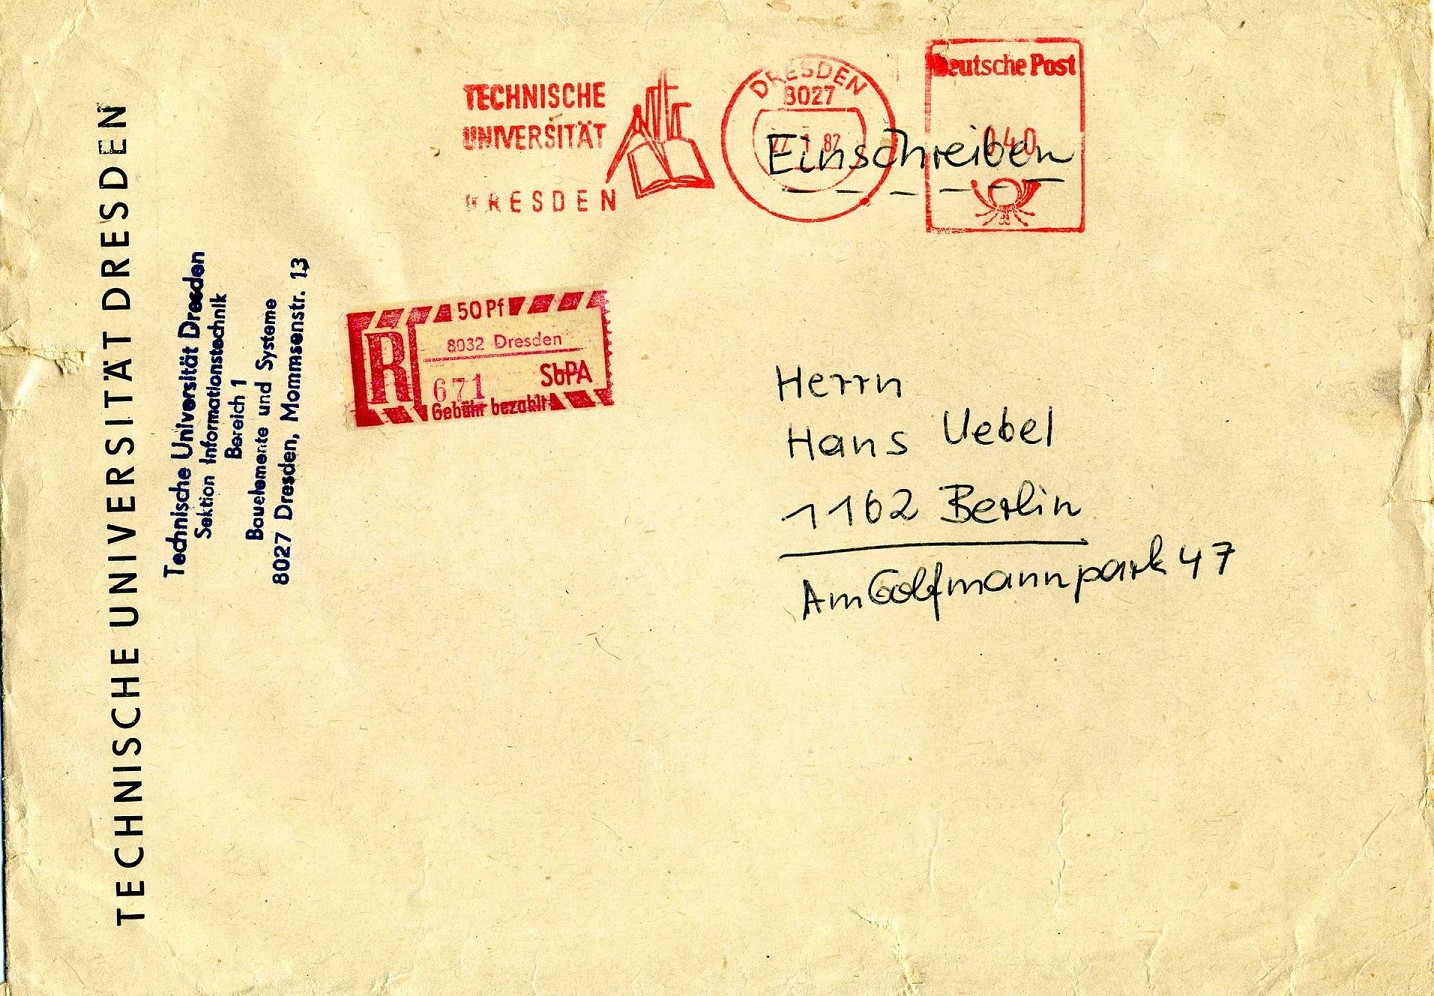 TECHNISCHE UNIVERSITÄT DRESDEN
Technische Universität Dresden
Sektion Informationstechnik
Bereich 1
Bauelemente und Systeme
8027 Dresden, Mommsenstr. 13
TECHNISCHE
UNIVERSITÄT
DRESDEN
DRESDEN
8027
82
Deutsche Post
040
Einschreiben
50 Pf
R
8032 Dresden
671 SbPA
Gebühr bezahlt
Herrn
Hans Uebel
1162 Berlin
Am Golfmannpark 47